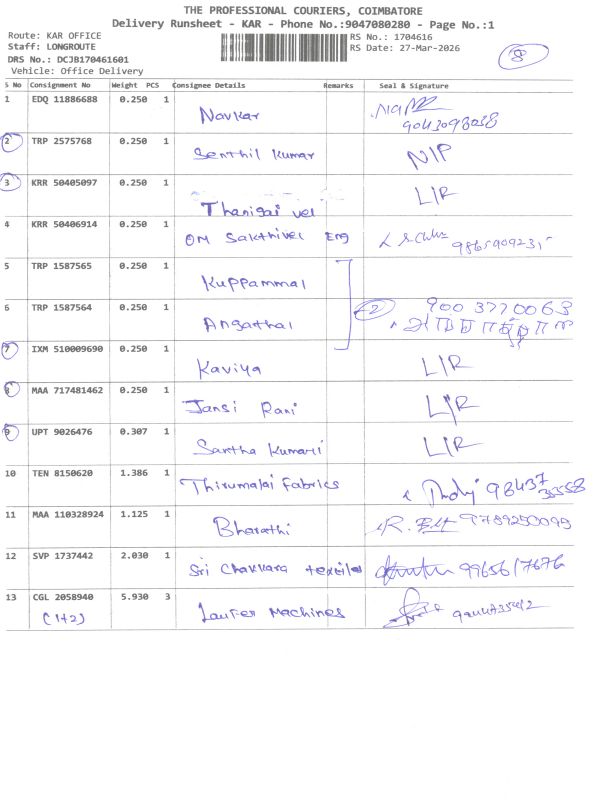 THE PROFESSIONAL COURIERS, COIMBATORE
Delivery Runsheet - KAR - Phone No.:9047080280 - Page No.:1
Route: KAR OFFICE
RS No.: 1704616
Staff: LONGROUTE
RS Date: 27-Mar-2026
8
DRS No.: DCJB170461601
Vehicle: Office Delivery
S No Consignment No Weight PCS Consignee Details Remarks Seal & Signature
1 EDQ 11886688 0.250 1 Navkar
2 TRP 2575768 0.250 1 Senthil Kumar N/P
3 KRR 50405097 0.250 1 Thanigai vel L/R
4 KRR 50406914 0.250 1 OM Sakthivel Eng
5 TRP 1587565 0.250 1 Kuppammal
6 TRP 1587564 0.250 1 Angathal 2 900 3770063
7 IXM 510009690 0.250 1 Kaviya L/R
8 MAA 717481462 0.250 1 Jansi Rani L/R
9 UPT 9026476 0.307 1 Santha Kumari L/R
10 TEN 8150620 1.386 1 Thirumalai Fabrics
11 MAA 110328924 1.125 1 Bharathi 9789250095
12 SVP 1737442 2.030 1 Sri Chakkara textile
13 CGL 2058940 5.930 3 Laufer Machines
(1+2)